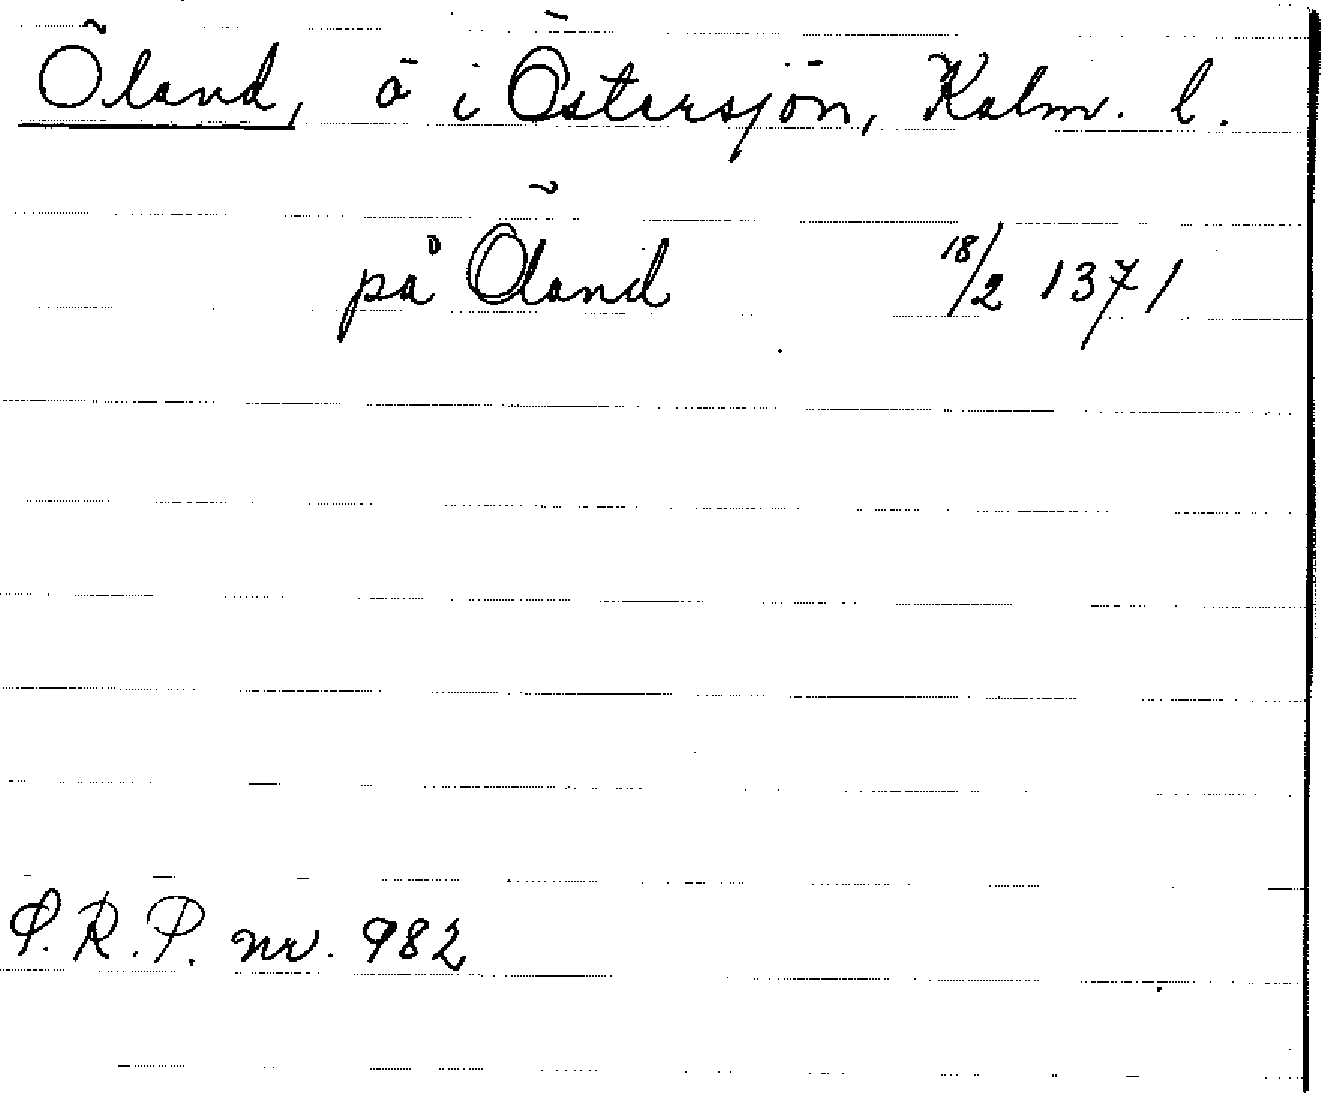 Öland, ö i Östersjön, Kalm. l.
på Öland 18/2 1371
P.R.P. nr. 982